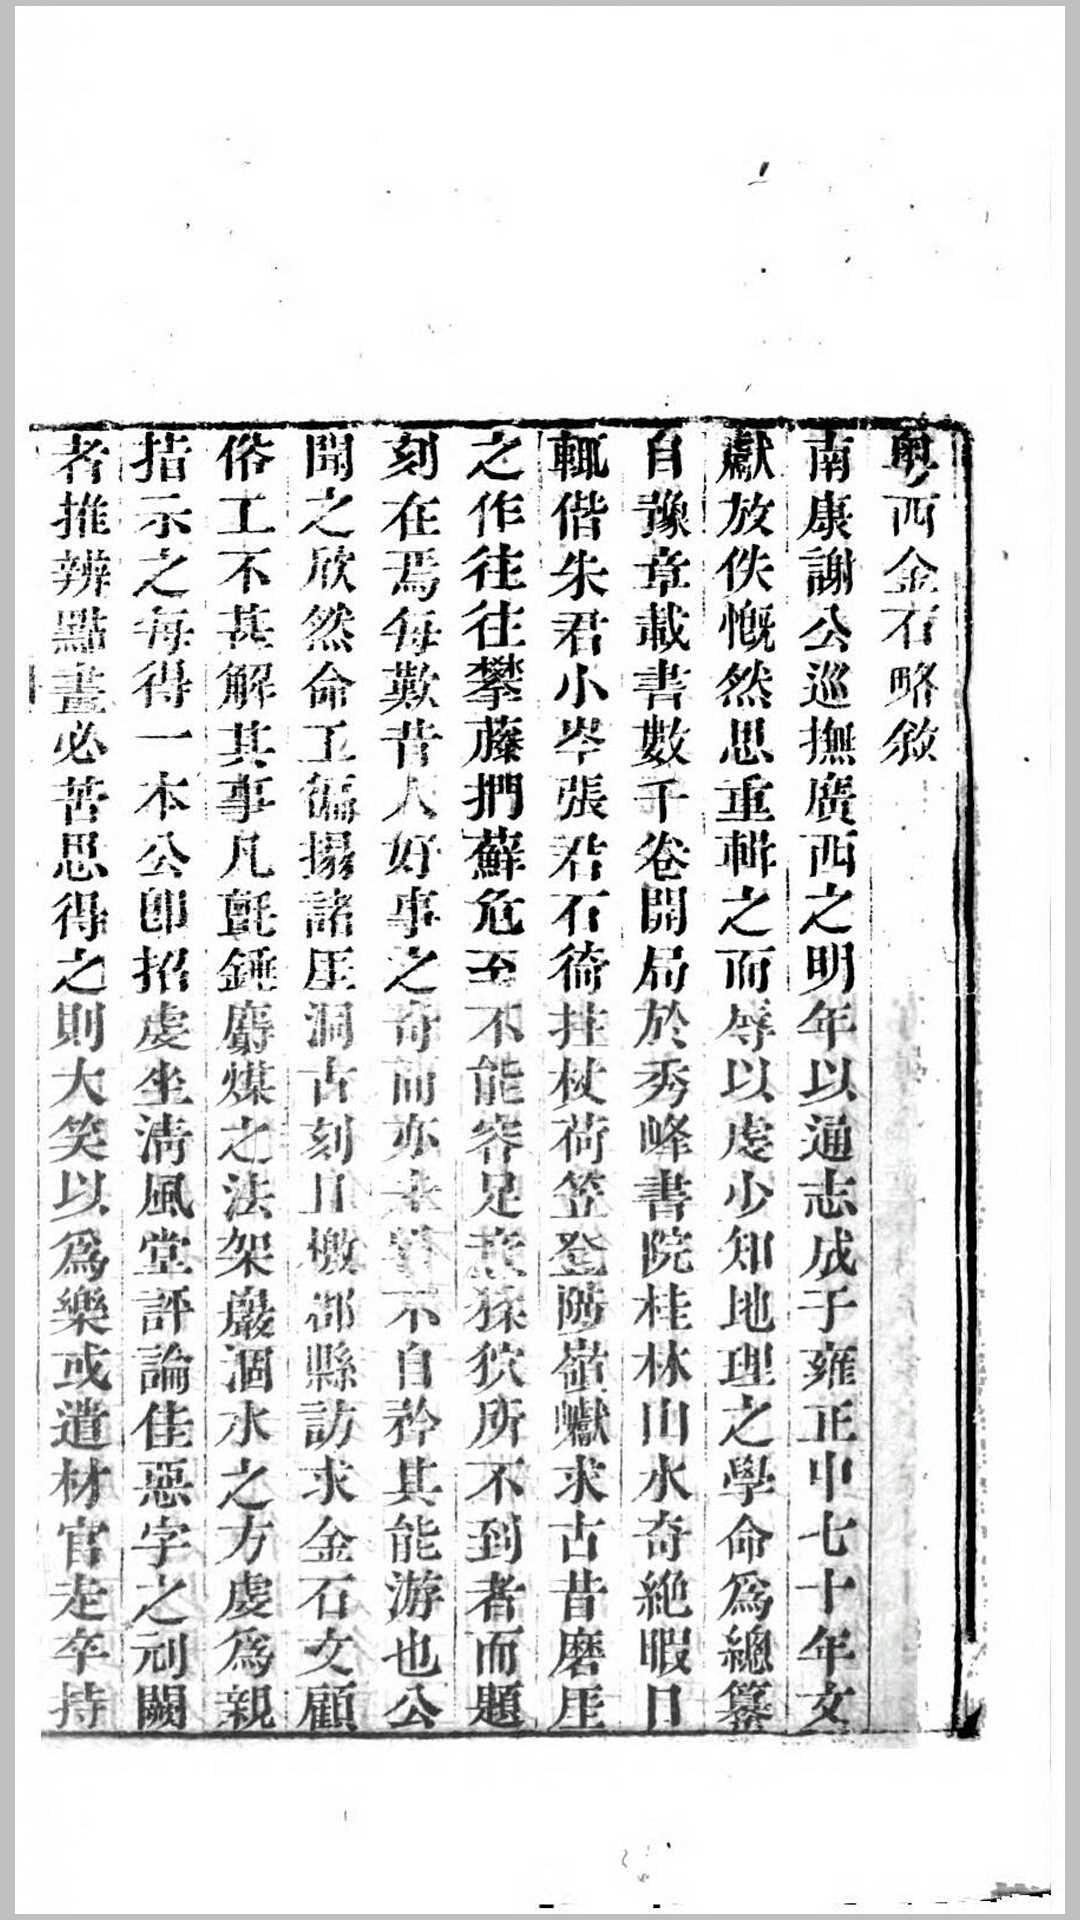 粵西金石略敘
南康謝公巡撫廣西之明年以通志成于雍正中七十年文
獻放佚慨然思重輯之而辱以虔少知地理之學命爲總纂
自豫章載書數千卷開局於秀峰書院桂林山水奇絕暇日
輒偕朱君小岑張君石徛拄杖荷笠登陟嶺巘求古昔磨厓
之作往往攀藤捫蘚危至不能容足猿狖所不到者而題
刻在焉每歎昔人好事之奇而亦未嘗不自矜其能游也公
聞之欣然命工徧搨諸厓洞古刻且檄郡縣訪求金石文顧
俗工不甚解其事凡氈錘麝煤之法架巖涸水之方虔爲親
指示之每得一本公卽招虔坐淸風堂評論佳惡字之刓闕
者推辨點畫必苦思得之則大笑以爲樂或遣材官走卒持